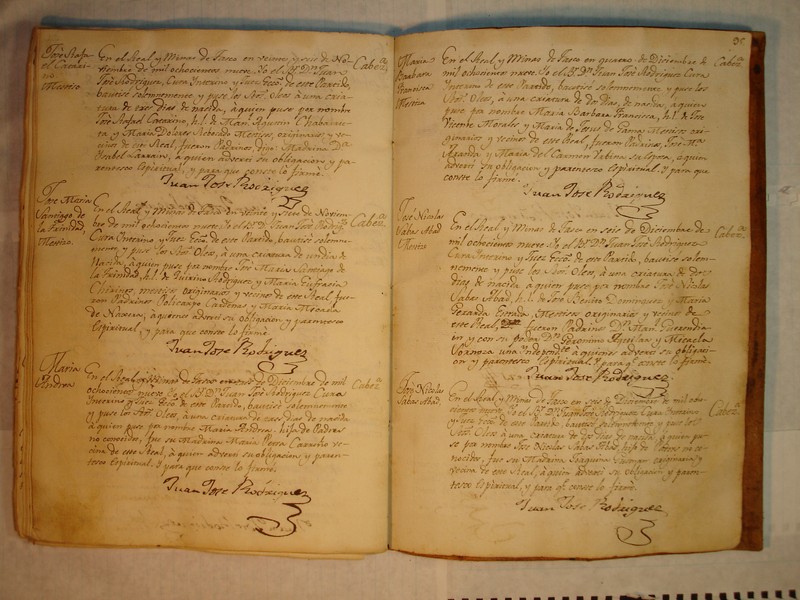 Jose Rafael Catarino Mestizo.
Cabez.ª
En el Real y Minas de Tasco en veinte y seis de No-
viembre de mil ochocientos nueve. Yo el B.r D.n Juan
José Rodriguez, Cura Interino y Juez Ecco. de este Partido,
bautisé solemnemente, y puse los Stos. Oleos, à una criatu-
ra de tres dias de nacida, à quien puse por nombre
José Rafael Catarino, h. l. de Man.l Agustin
ta, y Maria Dolores Mestizos, originarios, y ve-
cinos de este Real, fueron Padrinos, digo Madrina D.ª
Ysabel Larrain, à quien advertí su obligacion y pa-
rentesco Espiritual, y para que conste lo firmé.
Juan Jose Rodriguez
Jose Maria Santiago de la Trinidad, Mestizo.
Cabez.ª
En el Real, y Minas de Tasco en veinte y siete de Noviem-
bre de mil ochocientos nueve. Yo el B.r D.n Juan José Rodrig.z
Cura Interino y Juez Ecco. de este Partido, bautisé solemne-
mente, y puse los Stos. Oleos, à una criatura de un dia de
Nacida, à quien puse por nombre José Maria Santiago de
la Trinidad, h. l. de Quirino Rodriguez, y Maria Eufracia
Chirinos, mestizos, originarios y vecinos de este Real, fue-
ron Padrinos Policarpo Cardenas, y Maria Micaela
de Naverez, à quienes advertí su obligacion, y parentesco
Espiritual, y para que conste lo firmé.
Juan Jose Rodriguez
Maria Andrea
Cabez.ª
En el Real, y Minas de Tasco en de Diciembre de mil
ochocientos nueve. Yo el B.r D.n Juan José Rodriguez Cura
Interino y Juez Ecco. de este Partido, bautisé solemnemente
y puse los Stos. Oleos, à una criatura de dias de nacida
à quien puse por nombre Maria Andrea, hija de Padres
no conocidos, fue su Madrina Maria Carriño ve-
cina de este Real, à quien advertí su obligacion, y paren-
tesco Espiritual, y para que conste lo firmé.
Juan Jose Rodriguez
Maria Barbara Francisca Mestiza
Cabez.ª
En el Real y Minas de Tasco en quatro de Diciembre de
mil ochocientos nueve. Yo el B.r D.n Juan José Rodriguez Cura
Interino de este Partido, bautisé solemnemente y puse los
Stos. Oleos, à una criatura de dos dias, de nacida, à quien
puse por nombre Maria Barbara Francisca, h. l. de José
Vicente Morales, y Maria de Jesus de Gama Mestizos ori-
ginarios y vecinos de este Real, fueron Padrinos, José M.ª
Aranda, y Maria del Carmen Tabina su Esposa, à quien
advertí su obligacion, y parentesco Espiritual. Y para que
conste lo firmé.
Juan Jose Rodriguez
Jose Nicolas Sabas Abad Mestizo
Cabez.ª
En el Real, y Minas de Tasco en seis de Diciembre de
mil ochocientos nueve. Yo el B.r D.n Juan José Rodriguez
Cura Interino, y Juez Ecco. de este Partido, bautisé solem-
nemente y puse los Stos. Oleos, à una criatura de dos
dias de nacida à quien puse por nombre José Nicolas
Sabas Abad, h. l. de José Benito Dominguez, y Maria
Gerarda Estrada Mestizos originarios y vecinos de
este Real, fueron Padrinos D.n Man.l
y con su poder D.n Geronimo Aguilar, y Micaela
à quienes advertí su obligaci-
on y parentesco Espiritual, y para q.e conste lo firmé.
Juan Jose Rodriguez
José Nicolas Sabas Abad.
Cabez.ª
En el Real, y Minas de Tasco en seis de Diciembre de mil o-
chocientos nueve. Yo el B.r D.n Juan José Rodriguez Cura Interino,
y Juez Ecco. de este Partido, bautisé solemnemente, y puse los
Stos. Oleos, à una criatura de dos dias de nacida, à quien pu-
se por nombre José Nicolas Sabas Abad, hijo de Padres no co-
nocidos, fue su Madrina Joaquina originaria y
vecina de este Real, à quien advertí su obligacion, y paren-
tesco Espiritual, y para q.e conste lo firmé.
Juan Jose Rodriguez